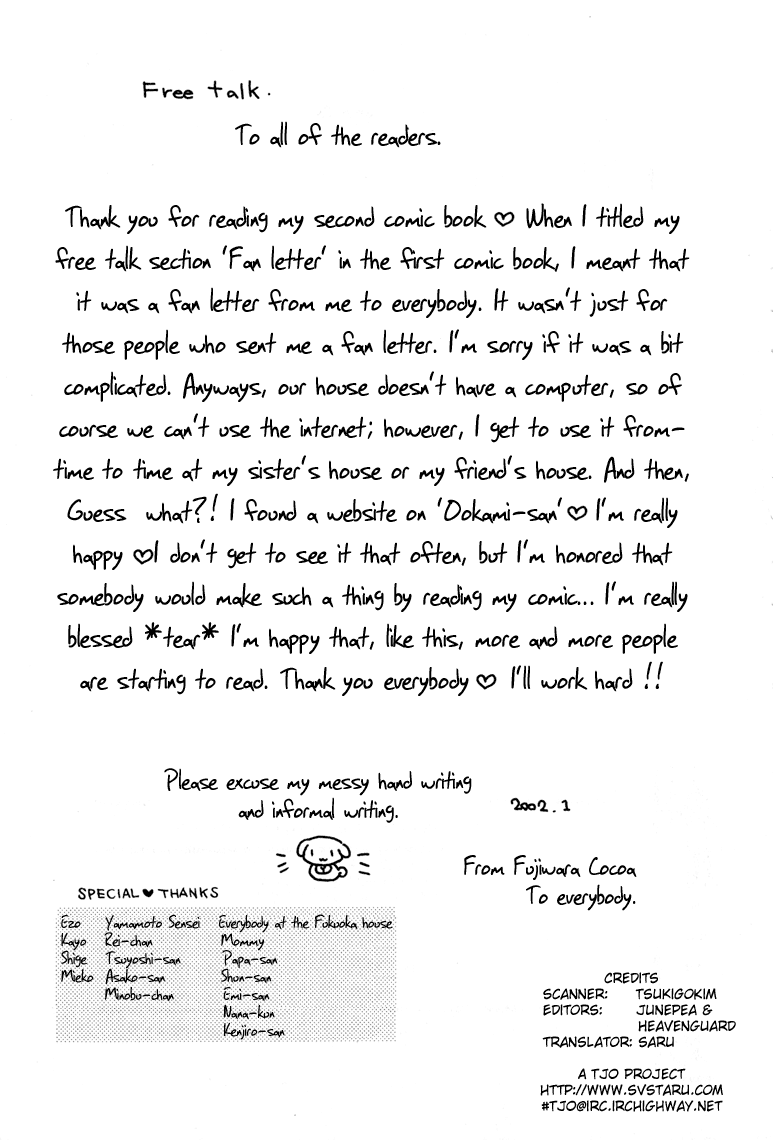 Free talk.
To all of the readers.
Thank you for reading my second comic book ♡ When I titled my
free talk section 'Fan letter' in the first comic book, I meant that
it was a fan letter from me to everybody. It wasn't just for
those people who sent me a fan letter. I'm sorry if it was a bit
complicated. Anyways, our house doesn't have a computer, so of
course we can't use the internet; however, I get to use it from-
time to time at my sister's house or my friend's house. And then,
Guess what?! I found a website on 'Ookami-san' ♡ I'm really
happy ♡ I don't get to see it that often, but I'm honored that
somebody would make such a thing by reading my comic... I'm really
blessed *tear* I'm happy that, like this, more and more people
are starting to read. Thank you everybody ♡ I'll work hard !!
Please excuse my messy hand writing
and informal writing.
2002.1
From Fujiwara Cocoa
To everybody.
SPECIAL ♥ THANKS
Ezo Yamamoto Sensei Everybody at the Fukuoka house
Kayo Rei-chan Mommy
Shige Tsuyoshi-san Papa-san
Mieko Asako-san Shun-san
Minobu-chan Emi-san
Nana-kun
Kenjiro-san
CREDITS
SCANNER: TSUKIGOKIM
EDITORS: JUNEPEA &
HEAVENGUARD
TRANSLATOR: SARU
A TJO PROJECT
HTTP://WWW.SVSTARU.COM
#TJO@IRC.IRCHIGHWAY.NET